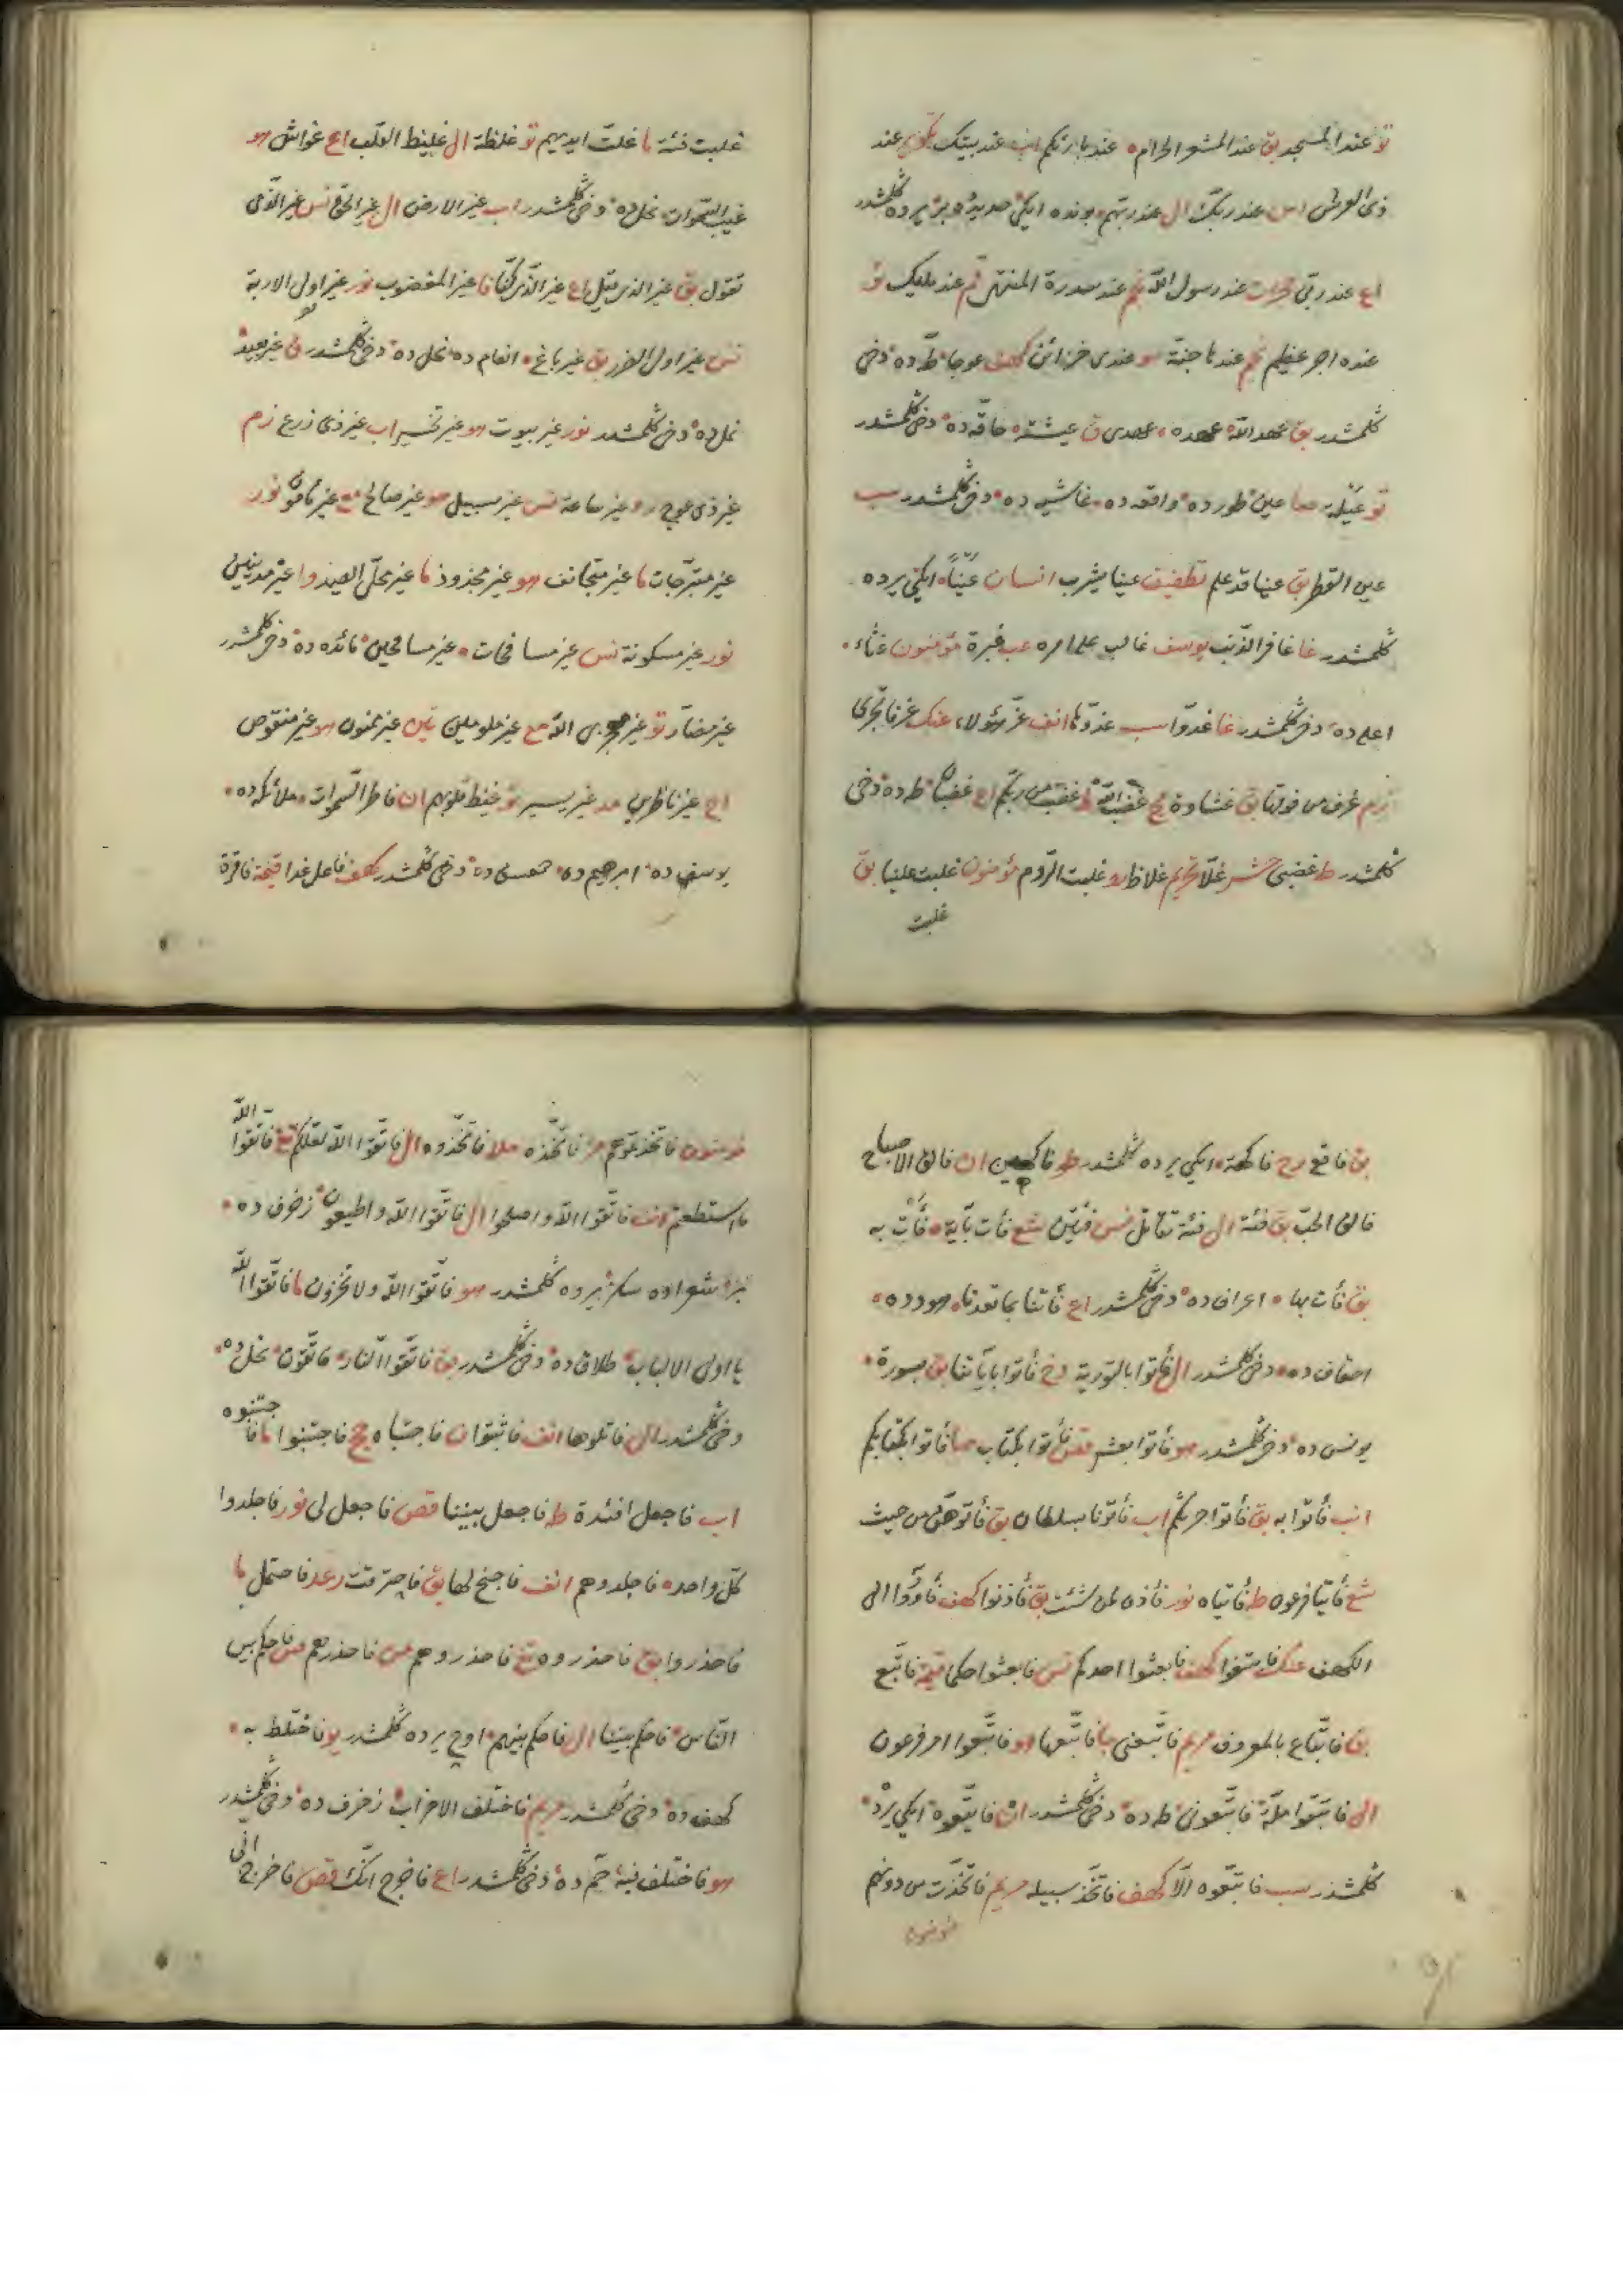 تو عند المسجد بق عند المشعر الحرام عند بارئكم اب عند بيتك تكوير عند
ذى العرش اس عند ربك ال عند ربهم بونده ايكى دخى كلمشدر
اع عند ربى حجرات عند رسول الله نجم عند سدرة المنتهى قم عند مليك تو
عنده اجر عظيم نجم عندها جنة هو عندى خزائن كهف عوجا طه ده دخى
كلمشدر بق عهد الله عهده عهدى ق عيشة حاقه ده دخى كلمشدر
تو عيلة صا عين طور ده واقعه ده غاشيه ده دخى كلمشدر سب
عين القطر بق عينا قد علم تطفيف عينا يشرب انسان عينا ايكى يرده
كلمشدر غا غافر الذنب يوسف غالب على امره عب غبرة مؤمنون غثاء
اعلى ده دخى كلمشدر غا غدوا سب غدوها انف غر هؤلاء عنك غرفا تجرى
زم غرف من فوقها بق غشاوة مج غضب الله ط غضب من ربكم اع غضبان طه ده دخى
كلمشدر ط غضبى حشر غلا تحريم غلاظ رو غلبت الروم مؤمنون غلبت علينا بق
غلبت
غلبت فئة ما غلت ايديهم تو غلظة ال غليظ القلب اع غواش هو
غيب السموات نحل ده دخى كلمشدر اب غير الارض ال غير الحق نس غير الذى
تقول بق غير الذى قيل اع غير الذى كنا فا غير المغضوب نور غير اولى الاربة
نس غير اولى الضرر بق غير باغ انعام ده نحل ده دخى كلمشدر ق غير بعيد
نمل ده دخى كلمشدر نور غير بيوت هو غير تخسير اب غير ذى زرع زم
غير ذى عوج رو غير ساعة نس غير سبيل هو غير صالح مع غير مأمون نور
غير متبرجات ما غير متجانف هو غير مجذوذ ما غير محلى الصيد وا غير مدينين
نور غير مسكونة نس غير مسافحات غير مسافحين مائده ده دخى كلمشدر
غير مضار تو غير معجزى الله مع غير ملومين تين غير ممنون هو غير منقوص
اح غير ناظرين مد غير يسير تو غيظ قلوبهم ان فاطر السموات ملائكه ده
يوسف ده ابرهيم ده ده دخى كلمشدر كهف فاعل غدا قيمة فاقرة
بق فاقع رح فاكهة ايكى يرده كلمشدر طو فاكهين ان فالق الاصباح
فالق الحب بق فئة ال فئة تقاتل نس فئتين شع فأت بآية فأت به
بق فأت بها اعراف ده دخى كلمشدر اع فأتنا بما تعدنا هود ده
احقاف ده دخى كلمشدر ال فأتوا بالتورية دخ فأتوا بآبائنا بق بسورة
يونس ده دخى كلمشدر هو فأتوا بعشر قص فأتوا بكتاب صا فأتوا بكتابكم
انب فأتوا به بق فأتوا حرثكم اب فأتونا بسلطان بق فأتوهن من حيث
شع فأتيا فرعون طه فأتياه نور فأذن لمن شئت بق فأذنوا كهف فأووا الى
الكهف عنك فابتغوا كهف فابعثوا احدكم نس فابعثوا حكما قيمة فاتبع
بق فاتباع بالمعروف مريم فاتبعنى جا فاتبعها هو فاتبعوا امر فرعون
ال فاتبعوا ملة فاتبعونى طه ده دخى كلمشدر ان فاتبعوه ايكى يرده
كلمشدر سب فاتبعوه الا كهف فاتخذ سبيله مريم فاتخذت من دونهم
مؤمنون
مؤمنون فاتخذتموهم مز فاتخذه ملا فاتخذوه ال فاتقوا الله لعلكم تغ فاتقوا الله
ما استطعتم انف فاتقوا الله واصلحوا ال فاتقوا الله واطيعون زخرف ده
شعراده سكز يرده كلمشدر هو فاتقوا الله ولا تخزون ما فاتقوا الله
يا اولى الالباب طلاق ده دخى كلمشدر بق فاتقوا النار فاتقون نحل ده
دخى كلمشدر ال فاتلوها انف فاثبتوا ن فاجتباه حج فاجتنبوا ما فاجتنبوه
اب فاجعل افئدة طه فاجعل بيننا قص فاجعل لى نور فاجلدوا
كل واحده فاجلدوهم انف فاجنح لها بق فاحترقت رعد فاحتمل ما
فاحذروا بق فاحذروه تغ فاحذروهم من فاحذرهم ص فاحكم بين
الناس فاحكم بيننا ال فاحكم بينهم اوچ يرده كلمشدر يو فاختلط به
كهف ده دخى كلمشدر مريم فاختلف الاحزاب زخرف ده دخى كلمشدر
هو فاختلف فيه حم ده دخى كلمشدر اع فاخرج انك قص فاخرج انى